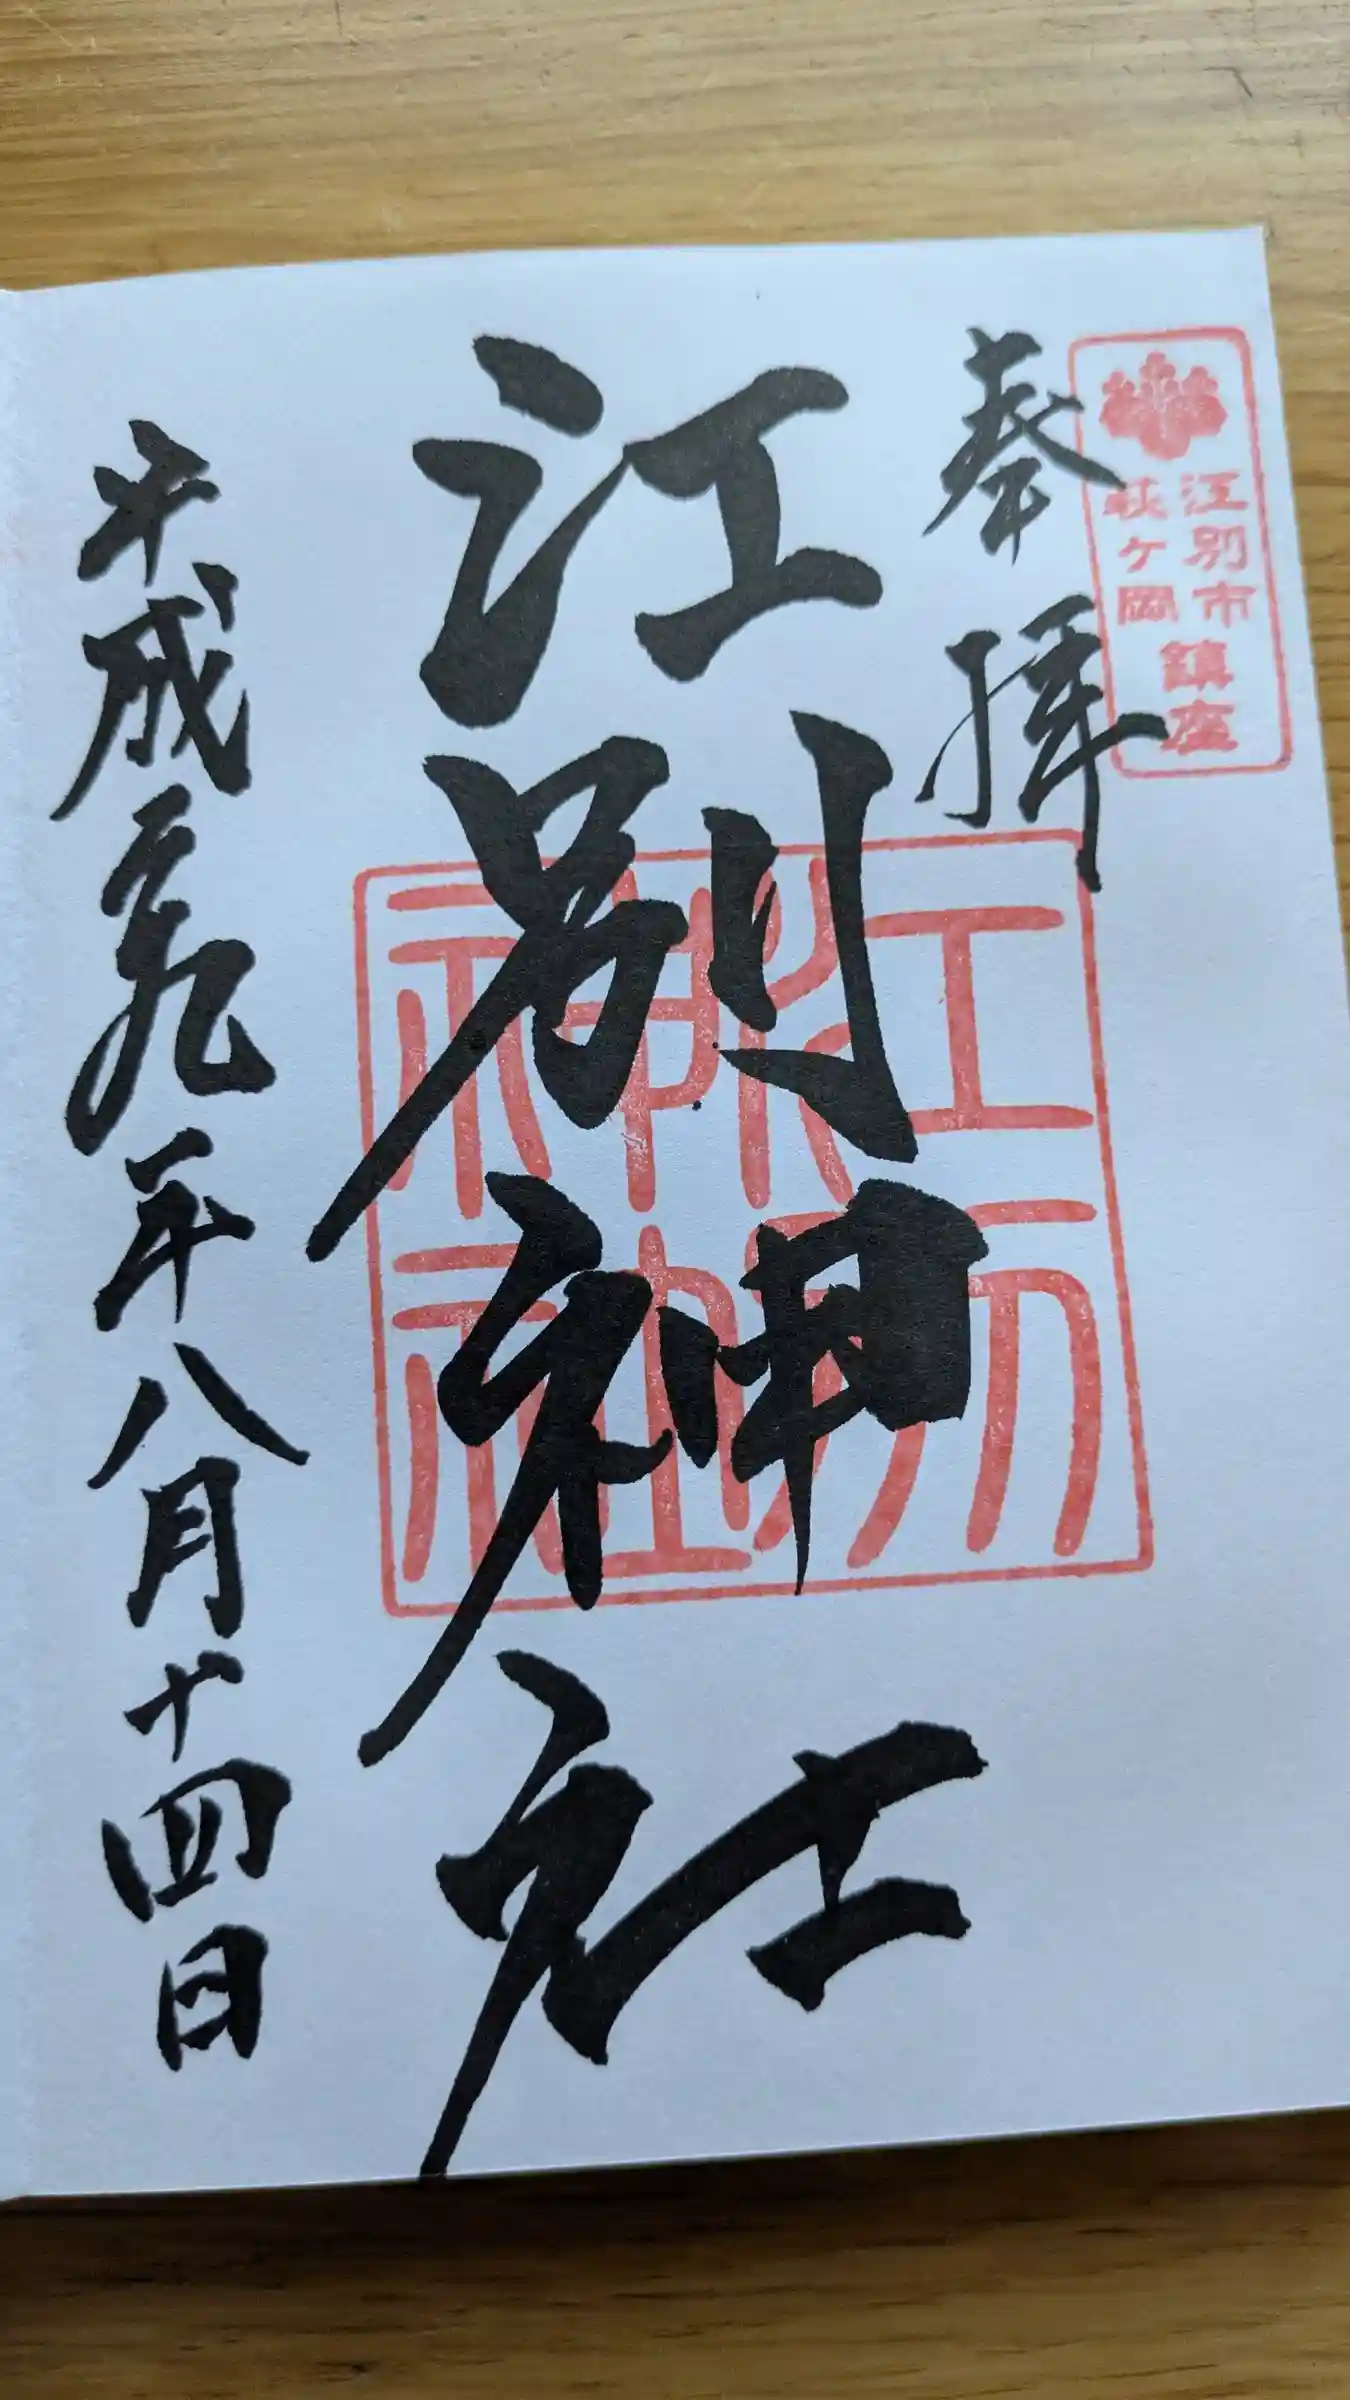 江別市
萩ヶ岡
鎮座
奉拝
江別神社
江別
神社
平成二九年八月十四日